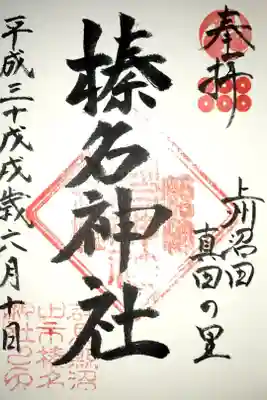 奉拝
上州沼田
真田の里
榛名神社
平成三十戊戌歳六月十日